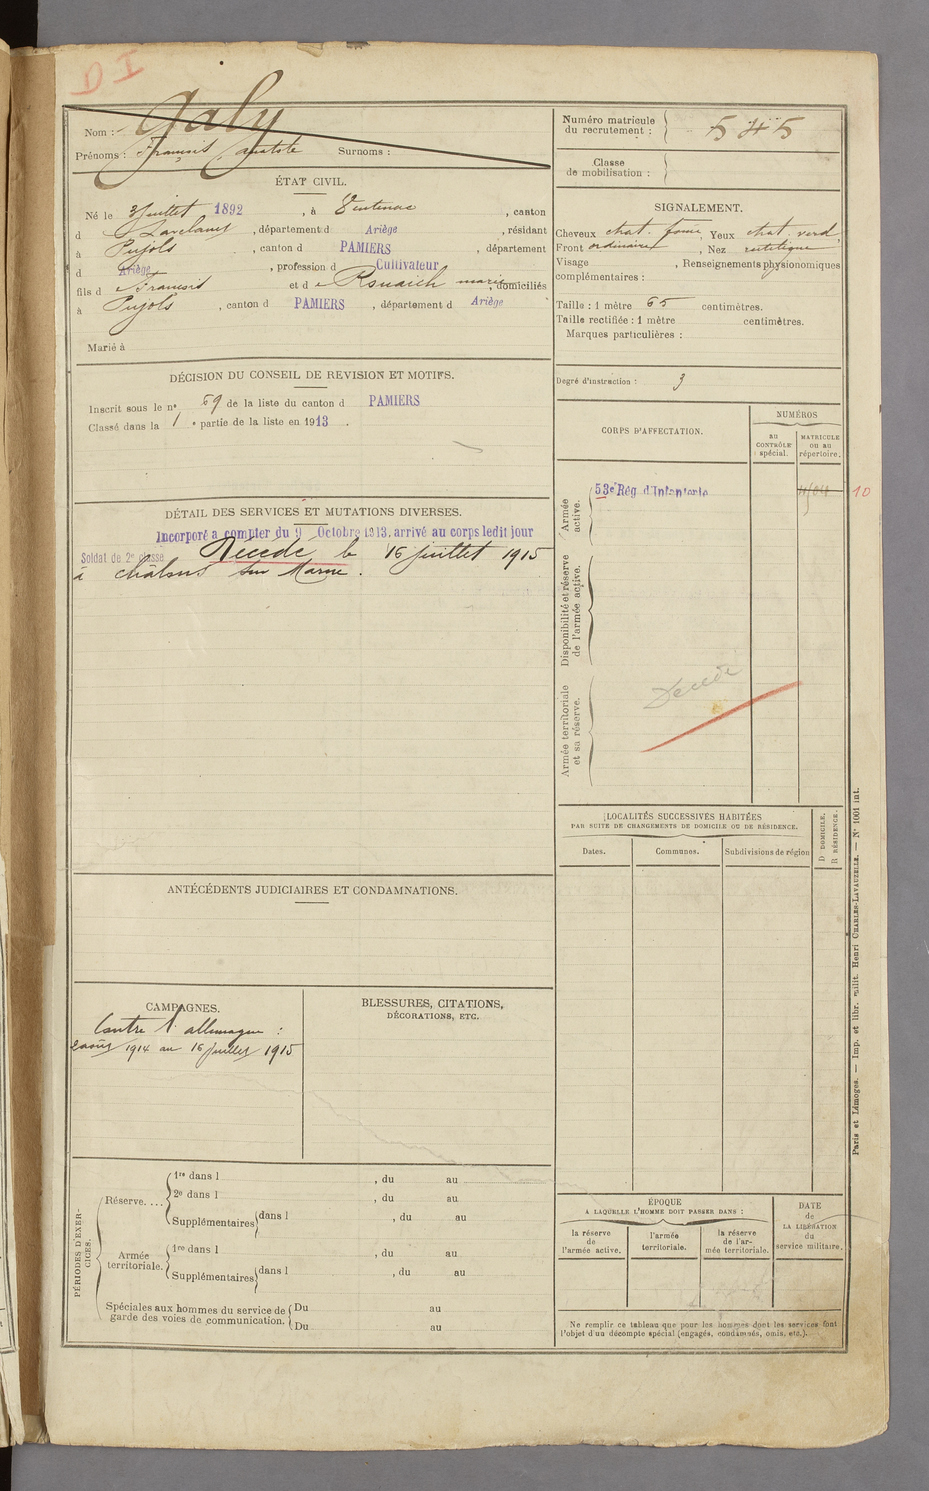 D I
Nom : Galy
Prénoms : François, Anatole Surnoms :
Numéro matricule
du recrutement : 545
Classe
de mobilisation :
ÉTAT CIVIL.
Né le 3 Juillet 1892, à Ventenac, canton
d Varilhes, département d Ariège, résidant
à Pujols, canton d PAMIERS, département
d Ariège, profession d Cultivateur
fils d e François et d e Rouaich marie, domiciliés
à Pujols, canton d PAMIERS, département d Ariège
Marié à
SIGNALEMENT.
Cheveux chat. foncé, Yeux chat. verd.
Front ordinaire, Nez rectiligne
Visage , Renseignements physionomiques
complémentaires :
Taille : 1 mètre 65 centimètres.
Taille rectifiée : 1 mètre centimètres.
Marques particulières :
Degré d'instruction : 3
DÉCISION DU CONSEIL DE REVISION ET MOTIFS.
Inscrit sous le n° 59 de la liste du canton d PAMIERS
Classé dans la 1 e partie de la liste en 1913.
CORPS D'AFFECTATION.
NUMÉROS
au
CONTRÔLE
spécial.
MATRICULE
ou au
répertoire.
Armée
active.
53e Rég. d'Infanterie
10
Disponibilité et réserve
de l'armée active.
Armée territoriale
et sa réserve.
Décédé
DÉTAIL DES SERVICES ET MUTATIONS DIVERSES.
Incorporé à compter du 9 Octobre 1913, arrivé au corps ledit jour
Soldat de 2e classe Décédé le 16 juillet 1915
à Châlons sur Marne.
LOCALITÉS SUCCESSIVES HABITÉES
PAR SUITE DE CHANGEMENTS DE DOMICILE OU DE RÉSIDENCE.
Dates.
Communes.
Subdivisions de région
D DOMICILE.
R RÉSIDENCE.
ANTÉCÉDENTS JUDICIAIRES ET CONDAMNATIONS.
CAMPAGNES.
Contre l'allemagne :
2 août 1914 au 16 juillet 1915
BLESSURES, CITATIONS,
DÉCORATIONS, ETC.
PÉRIODES D'EXER-
CICES.
Réserve....
1re dans l , du au
2e dans l , du au
Supplémentaires dans l , du au
Armée
territoriale.
1re dans l , du au
Supplémentaires dans l , du au
Spéciales aux hommes du service de
garde des voies de communication.
Du au
Du au
ÉPOQUE
A LAQUELLE L'HOMME DOIT PASSER DANS :
la réserve
de
l'armée active.
l'armée
territoriale.
la réserve
de l'ar-
mée territoriale.
DATE
de
LA LIBÉRATION
du
service militaire.
Ne remplir ce tableau que pour les hommes dont les services font
l'objet d'un décompte spécial (engagés, condamnés, omis, etc.).
Paris et Limoges. — Imp. et libr. milit. Henri CHARLES-LAVAUZELLE. — N° 1061 int.